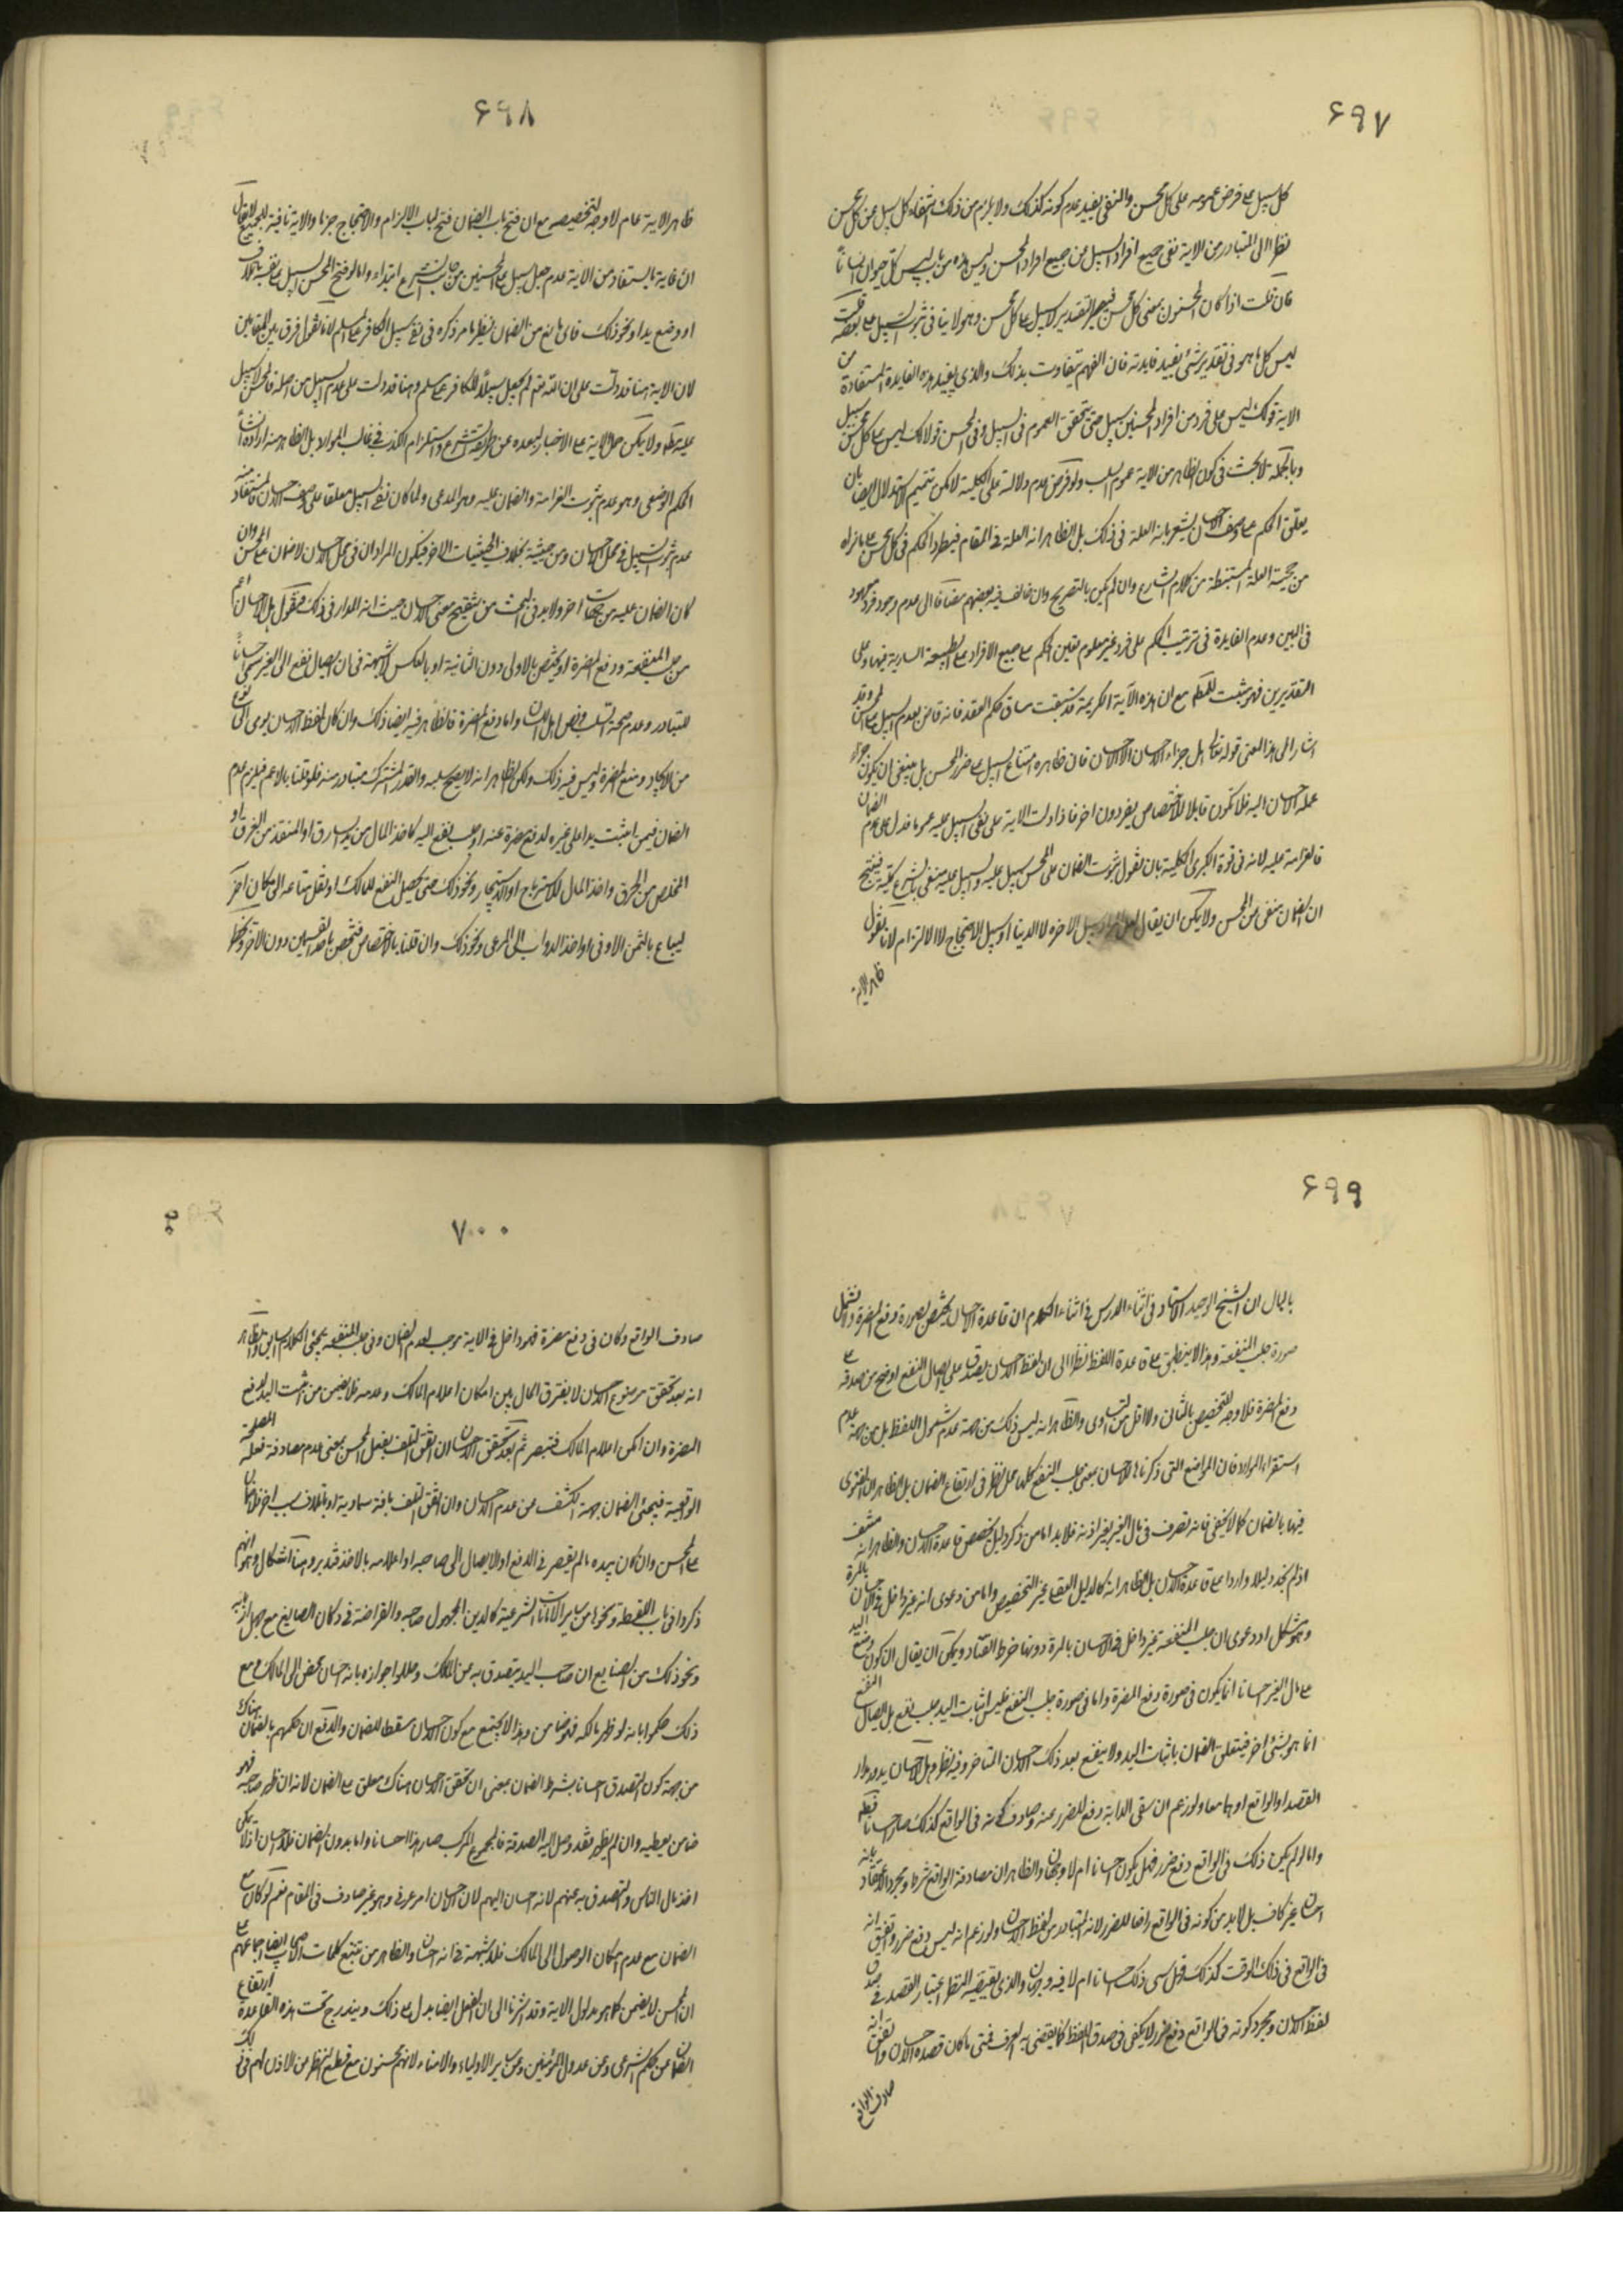 ۶۹۷
كل سبيل على فرض عمومه على كل محسن والنفى يفيد عدم كونه كذلك ولا يلزم من ذلك انتفاء كل سبيل عن كل محسن
نظرا الى المتبادر من الاية نفى جميع افراد السبيل عن جميع افراد المحسن وليس هذه من باب ليس كل حيوان انسانا
فان قلت اذا كان المحسنون بمعنى كل محسن فيصير التقدير لا سبيل على كل محسن وهو لا ينافى ثبوت السبيل على بعضه قلت
ليس كل ما هو فى تقدير شئ يفيد فايدته فان الفهم يتفاوت بذلك والذى يفيد هذه الفايدة المستفادة من
الاية قولك ليس على فرد من افراد المحسنين سبيل حتى يتحقق العموم فى السبيل وفى المحسن لا قولك ليس على كل محسن سبيل
وبالجملة لا بحث فى كون الظاهر من الاية عموم السلب ولو فرض عدم دلالته على الكلية لامكن تتميم الاستدلال ايضا بان
تعليق الحكم على وصف الاحسان يشعر بانه العلة فى ذلك بل الظاهر انه العلة فى المقام فيطرد الحكم فى كل محسن على ما نراه
من حجية العلة المستنبطة من كلام الشارع وان لم يكن بالتصريح وان خالف فيه بعضهم مضافا الى عدم وجود فرد معهود
فى البين وعدم الفايدة فى ترتيب الحكم على فرد غير معلوم يعين الحكم على جميع الافراد على الطبيعة السارية فيها وعلى
التقديرين فهو مثبت للمط مع ان هذه الآية الكريمة قد سيقت مساق حكم العقد فانه قاض بعدم السبيل على المحسن وقد
اشار الى هذا المعنى قوله تعالى هل جزاء الاحسان الا الاحسان فان ظاهره امتناع السبيل على ضرر المحسن بل ينبغى ان يكون جزاء
عمله احسان اليه فلا تكون قابلا للاختصاص بفرد دون اخر فاذا دلت الاية على نفى السبيل عليه عموما فدل على عدم الضمان
فالغرامة عليه لانه فى قوة الكبرى الكلية بان نقول ثبوت الضمان على المحسن سبيل عليه والسبيل عليه منفى بالشرع كلية فينتج
ان الضمان منفى عن المحسن ولا يمكن ان يقال لعل المراد سبيل الاخره لا الدنيا او سبيل الاحتجاج لا الالزام لانا نقول
ظاهر الاية
۶۹۸
ظاهر الاية عام لا وجه لتخصيصه مع ان فتح باب الضمان فتح لباب الالزام والاحتجاج جزما والاية نافية للجميع لا يقال
ان غاية ما يستفاد من الاية عدم جعل سبيل على المحسنين من جانب الشرع ابتداء واما لو فتح المحسن السبيل على نفسه باتلاف
او وضع يد او نحو ذلك فاى مانع من الضمان نظير ما مر ذكره فى نفى سبيل الكافر على المسلم لانا نقول فرق بين المقامين
لان الاية هنا قد دلت على ان الله تعم لم يجعل سبيلا للكافر على المسلم وهنا قد دلت على عدم السبيل من اصله فالمحسن لا سبيل
عليه مط ولا يمكن حمل الاية على الاخبار لبعده عن طريقة الشرع واستلزام الكذب فى غالب الموارد بل الظاهر منه ارادة انشاء
الحكم الوضعى وهو عدم ثبوت الغرامة والضمان عليه وهو المدعى ولما كان نفى السبيل معلقا على وصف الاحسان فالمستفاد منه
عدم ثبوت السبيل فى محل الاحسان ومن حيثيته بخلاف الحيثيات الاخر فيكون المراد ان فى محل الاحسان لا ضمان على المحسن وان
كان الضمان عليه من جهات اخر ولا بد فى البحث من تنقيح معنى الاحسان حيث انه المدار فى ذلك فنقول هل الاحسان اعم
من جلب المنفعة ودفع المضرة او يختص بالاولى دون الثانية او بالعكس لا شبهة فى ان ايصال نفع الى الغير يسمى احسانا
للتبادر وعدم صحة السلب ونص اهل اللسان واما دفع المضرة فالظاهر فيه ايضا ذلك وان كان لفظ الاحسان يومى الى نوع
من الايجاد ومنع المضرة وليس فيه ذلك ولكن الظاهر انه لا يصح سلبه والقدر المشترك متبادر منه فلو قلنا بالاعم فيلزم عدم
الضمان فيمن اثبت يدا على غيره لدفع مضرة عنه او جلب نفع اليه كاخذ المال من يد السارق او المنقذ من الغرق او
المخلص من الحرق واخذ المال للاسترباح او للاستيجار ونحو ذلك حتى يحصل النفع للمالك او نقل متاعه الى مكان اخر
ليباع بالثمن الاوفى او اخذ الدواب الى المرعى ونحو ذلك وان قلنا بالاختصاص فتختص باحد القسمين دون الاخر ويخطر
۶۹۹
بالبال ان الشيخ الوحيد الاستاد فى اثناء الدرس فى اثناء الكلام ان قاعدة الاحسان يختص بصورة دفع المضرة ولا تشمل
صورة جلب المنفعة وهذا لا ينطبق على قاعدة اللفظ نظرا الى ان لفظ الاحسان يصدق على ايصال النفع اوضح من صدقه على
دفع المضرة فلا وجه للتخصيص بالثانى ولا اقل من التساوى والظاهر انه ليس ذلك من جهة عدم شمول اللفظ بل من جهة عدم
استقراء الموارد فان المواضع التى ذكرناها للاحسان بمعنى جلب النفع كلها محل نظر فى ارتفاع الضمان بل الظاهر ان الفتوى
فيها بالضمان كما لا يخفى فانه تصرف فى مال الغير بغير اذنه فلا بد اما من ذكر دليل يخصص قاعدة الاحسان والظاهر انه منتف
اذ لم نجد دليلا واردا على قاعدة الاحسان بل الظاهر انه كالدليل العقلى غير التخصيص واما من دعوى انه غير داخل فى الاحسان بالمرة
وهو مشكل او دعوى ان جلب المنفعة غير داخل فى الاحسان بالمرة دونها خرط القتاد ويمكن ان يقال ان كون وضع اليد
على مال الغير احسانا انما يكون فى صورة دفع المضرة واما فى صورة جلب النفع فليس اثبات اليد جلب نفع بل ايصال النفع
انما هو بشئ اخر فيتعلق الضمان باثبات اليد ولا ينفع بعد ذلك الاحسان المتاخر وفيه نظر وهل الاحسان يدور مدار
القصد او الواقع او هما معا ولو زعم ان سقى الدابة دفع للضرر عنه وصادف كونه فى الواقع كذلك صار احسانا فعله
واما لو لم يكن ذلك فى الواقع دفع ضرر فهل يكون احسانا ام لا وجهان والظاهر ان مصادفة الواقع شرط ومجرد الاعتقاد بانه
احسان غير كاف بل لابد من كونه فى الواقع رافعا للضرر لانه المتبادر من لفظ الاحسان ولو زعم انه ليس دفع ضرر واتفق انه
فى الواقع فى ذلك الوقت كذلك فهل يسمى ذلك احسانا ام لا فيه وجهان والذى يقتضيه النظر اعتبار القصد فى صدق
لفظ الاحسان ومجرد كونه فى الواقع دفع ضرر لا يكفى فى صدق اللفظ كما يقضى به العرف فمتى ما كان قصده الاحسان واتفق انه
صادف الواقع
۷۰۰
صادف الواقع وكان فى دفع مضرة فهو داخل فى الاية موجب لعدم الضمان وفى جلب المنفعة يجئ الكلام السابق والظاهر
انه بعد تحقق موضوع الاحسان لا يفترق الحال بين امكان اعلام المالك وعدمه فلا يضمن من اثبت اليد لدفع
المضرة وان امكن اعلام المالك فتبصر ثم بعد تحقق الاحسان ان اتفق التلف بفعل المحسن بمعنى عدم مصادفة فعله المصلحة
الواقعية فيجئ الضمان بجهة الكشف عن عدم الاحسان وان اتفق التلف بافة سماوية او باتلاف سبب اخر فلا ضمان
على المحسن وان كان بيده ما لم يقصر فى الدفع او الايصال الى صاحبه او اعلامه بالاخذ فتدبر وهنا اشكال وهو انهم
ذكروا فى باب اللقطة ونحوها من ساير الامانات الشرعية كالدين المجهول صاحبه والقراضة فى دكان الصايغ مع جهل اربابه
ونحو ذلك من الصنايع ان صاحب اليد يتصدق به عن المالك وعللوا جوازه بانه احسان محض الى المالك ومع
ذلك حكموا بانه لو ظهر مالكه فهو ضامن وهذا لا يجتمع مع كون الاحسان مسقطا للضمان والدفع ان حكمهم بالضمان هناك
من جهة كون التصدق احسانا بشرط الضمان بمعنى ان تحقق الاحسان هناك معلق على الضمان لانه ان ظهر صاحبه فهو
ضامن يعطيه وان لم يظهر فقد وصل اليه الصدقة فالمجموع المركب صار هذا احسانا واما بدون الضمان فلا احسان اذ لا يمكن
اخذ مال الناس والتصدق به عنهم لانه احسان اليهم لان الاحسان امر عرفى وهو غير صادف فى المقام نعم لو كان مع
الضمان مع عدم امكان الوصول الى المالك فلا شبهة فى انه احسان والظاهر من تتبع كلمات الاصحاب ايضا اجماعهم على
ان المحسن لا يضمن كما هو مدلول الاية وقد اشرنا الى ان العقل ايضا يدل على ذلك ويندرج تحت هذه القاعدة ارتفاع
الضمان عن حكم الشرعى وعن عدول المؤمنين وعن ساير الاولياء والامناء لانهم محسنون مع قطع النظر عن الاذن لهم فى